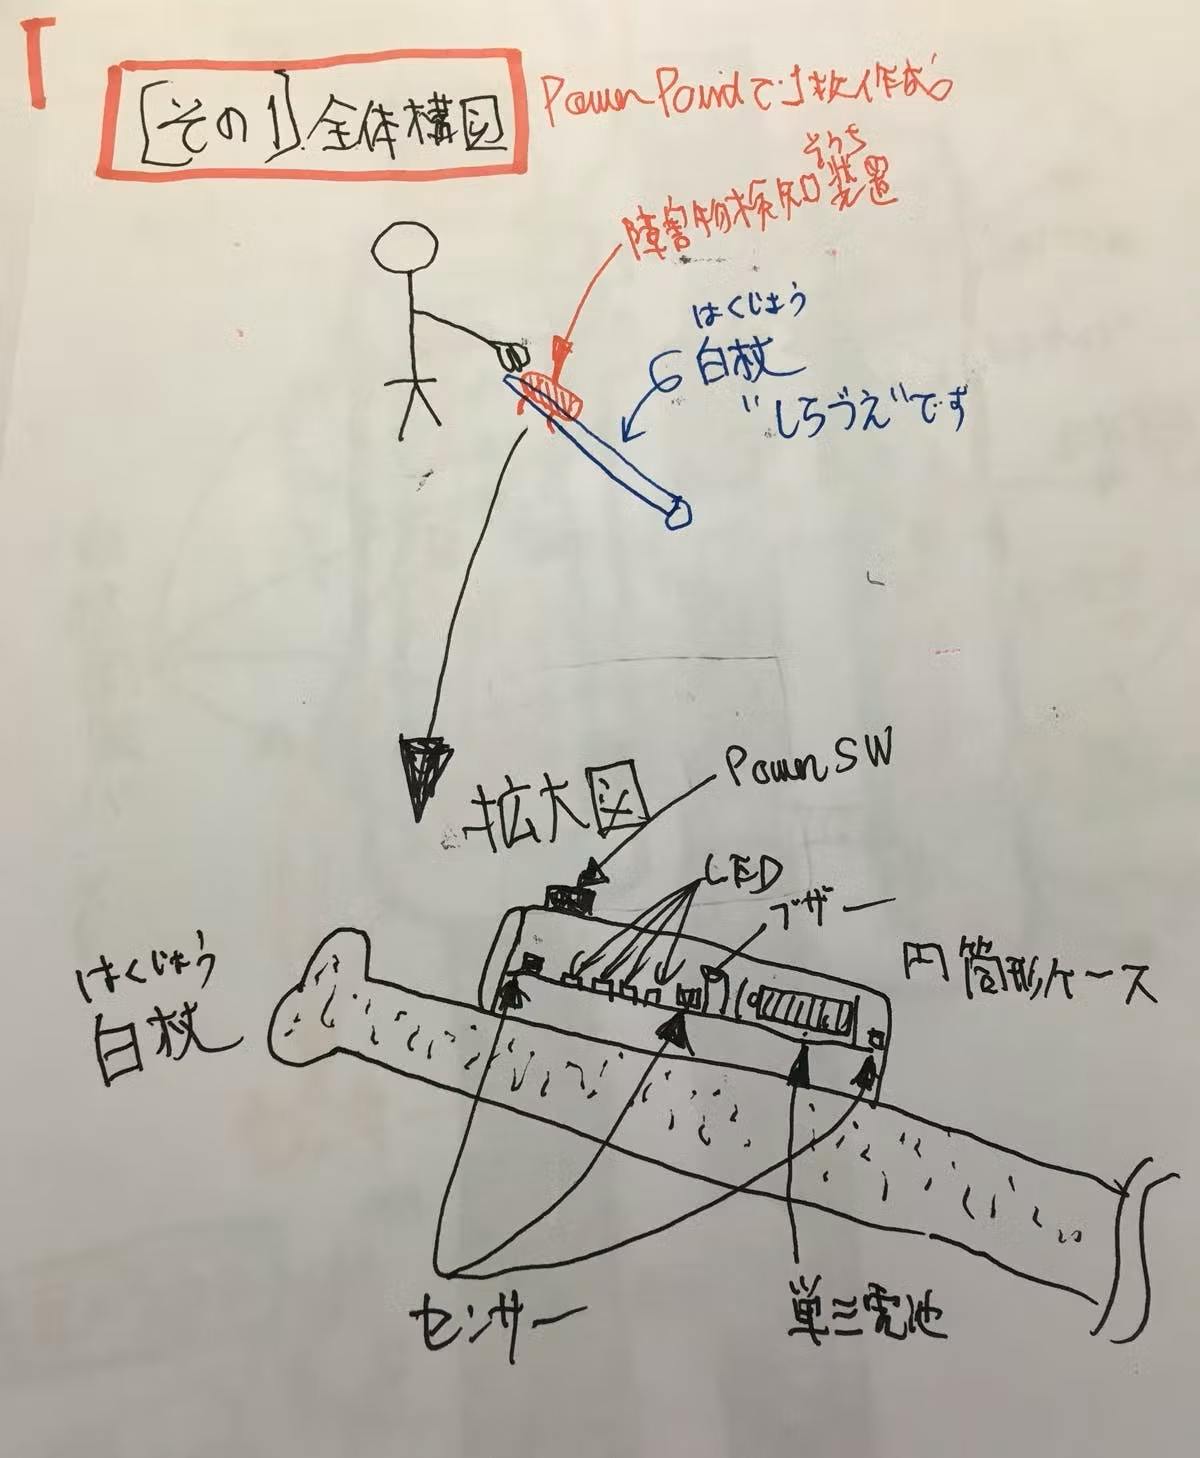 [その1] 全体構図
PowerPointで1枚作成
そうち
障害物検知装置
はくじょう
白杖
"しらづえ"です
拡大図
Power SW
LED
ブザー
円筒形ケース
はくじょう
白杖
センサー
単三電池